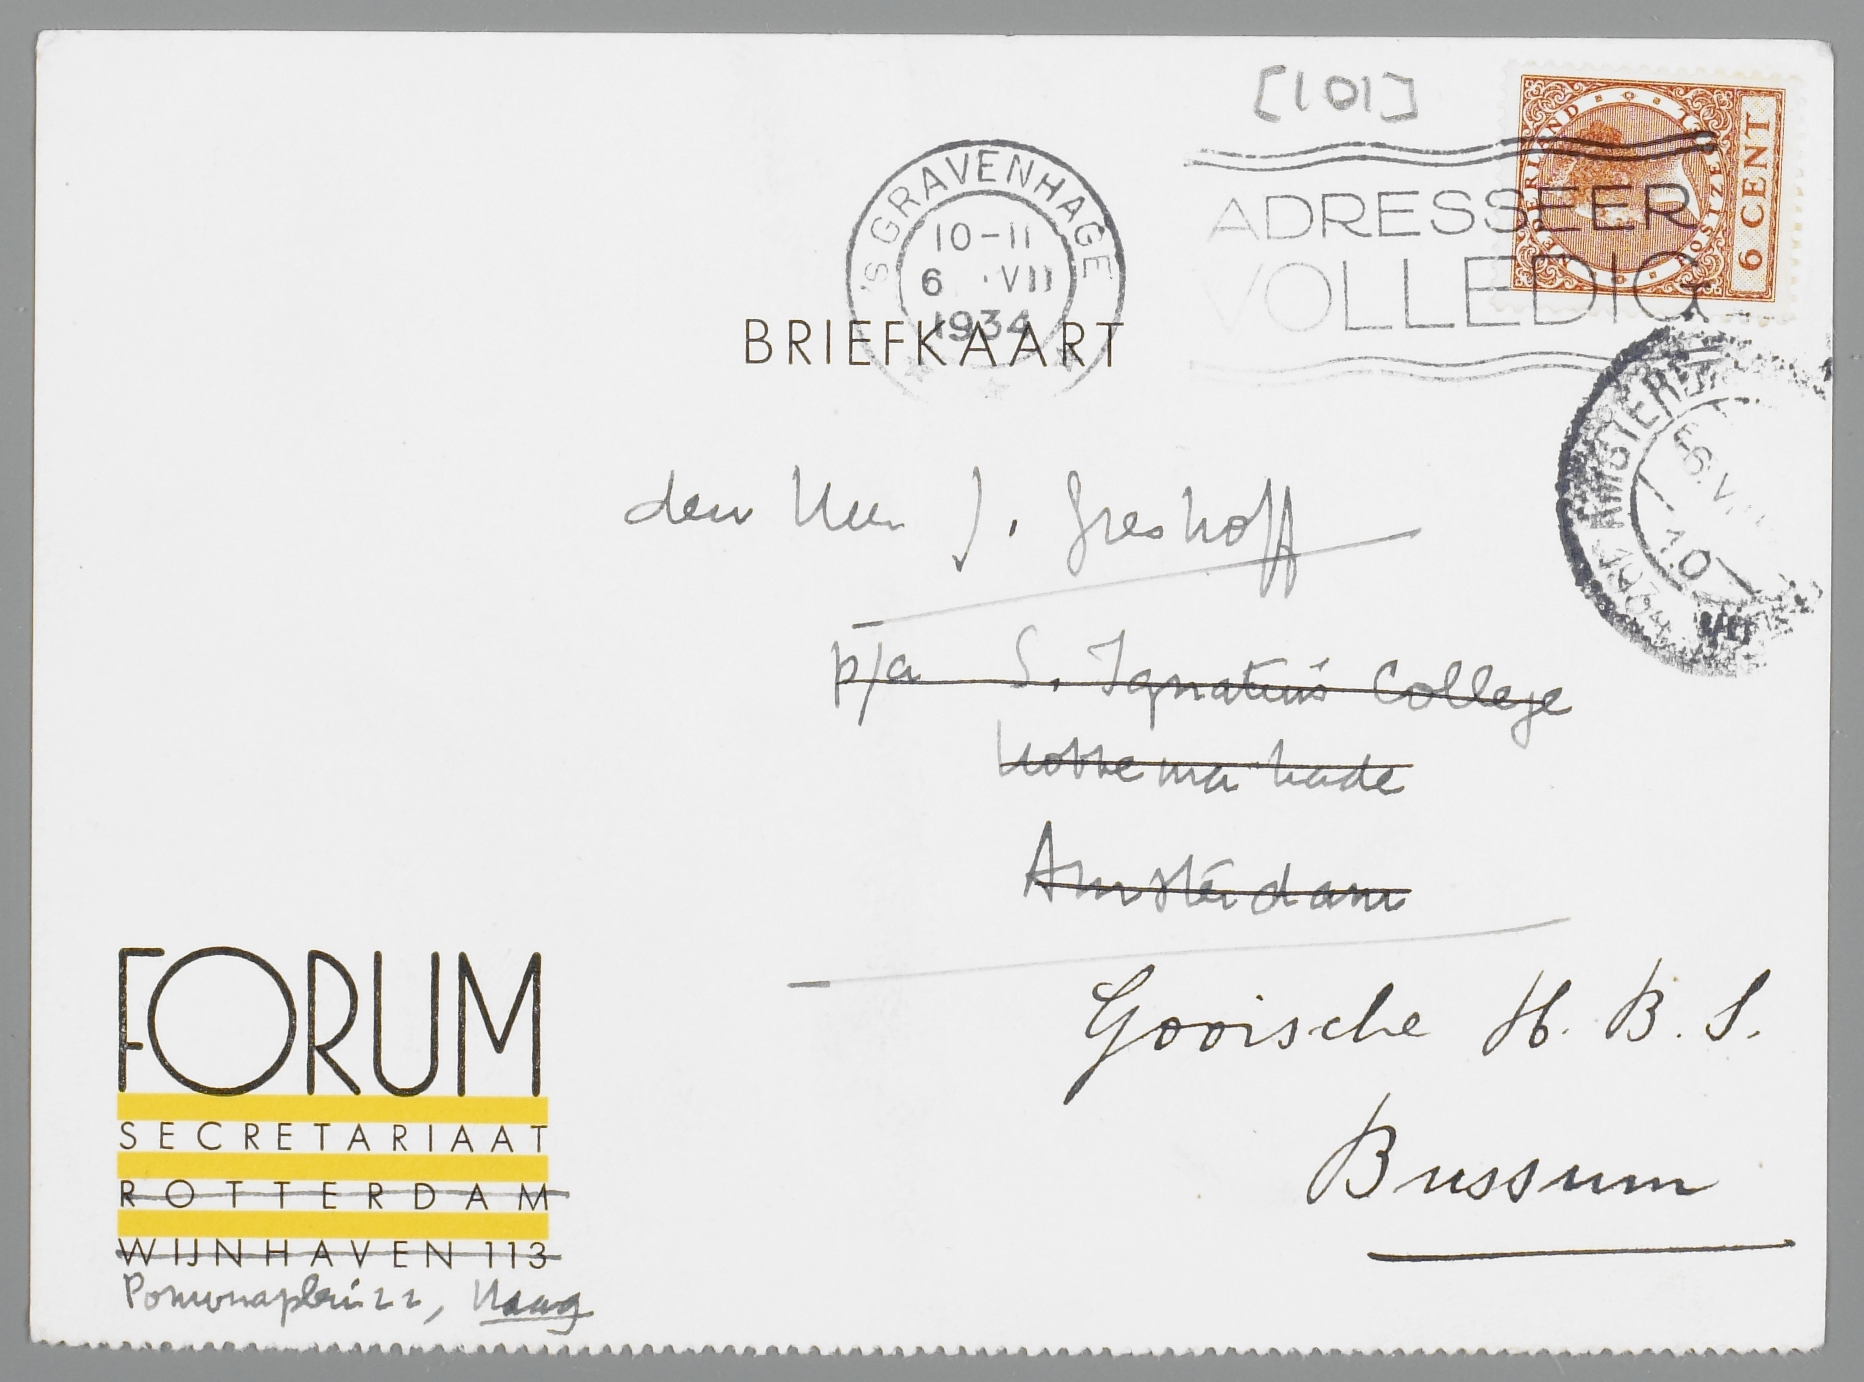 [101]
NEDERLAND
POSTZEGEL
6 CENT
'S GRAVENHAGE
10-11
6 VII
1934
ADRESSEER
VOLLEDIG
BRIEFKAART
AMSTERDAM
6.VII
10
den Heer J. Greshoff
p/a S. Ignatius College
Hobbemakade
Amsterdam
Gooische H.B.S.
Bussum
FORUM
SECRETARIAAT
ROTTERDAM
WIJNHAVEN 113
Pomonaplein 22, Haag